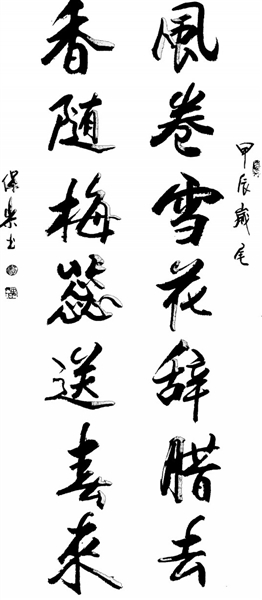 甲辰歲尾
風卷雪花辞腊去
香随梅蕊送春來
保樂书